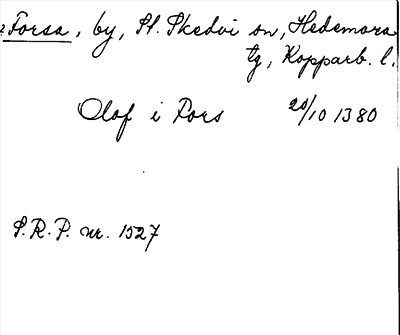 Forsa, by, St. Skedvi sn, Hedemora
tg, Kopparb. l.
Olof i Fors 20/10 1380
S.R.P. nr. 1527